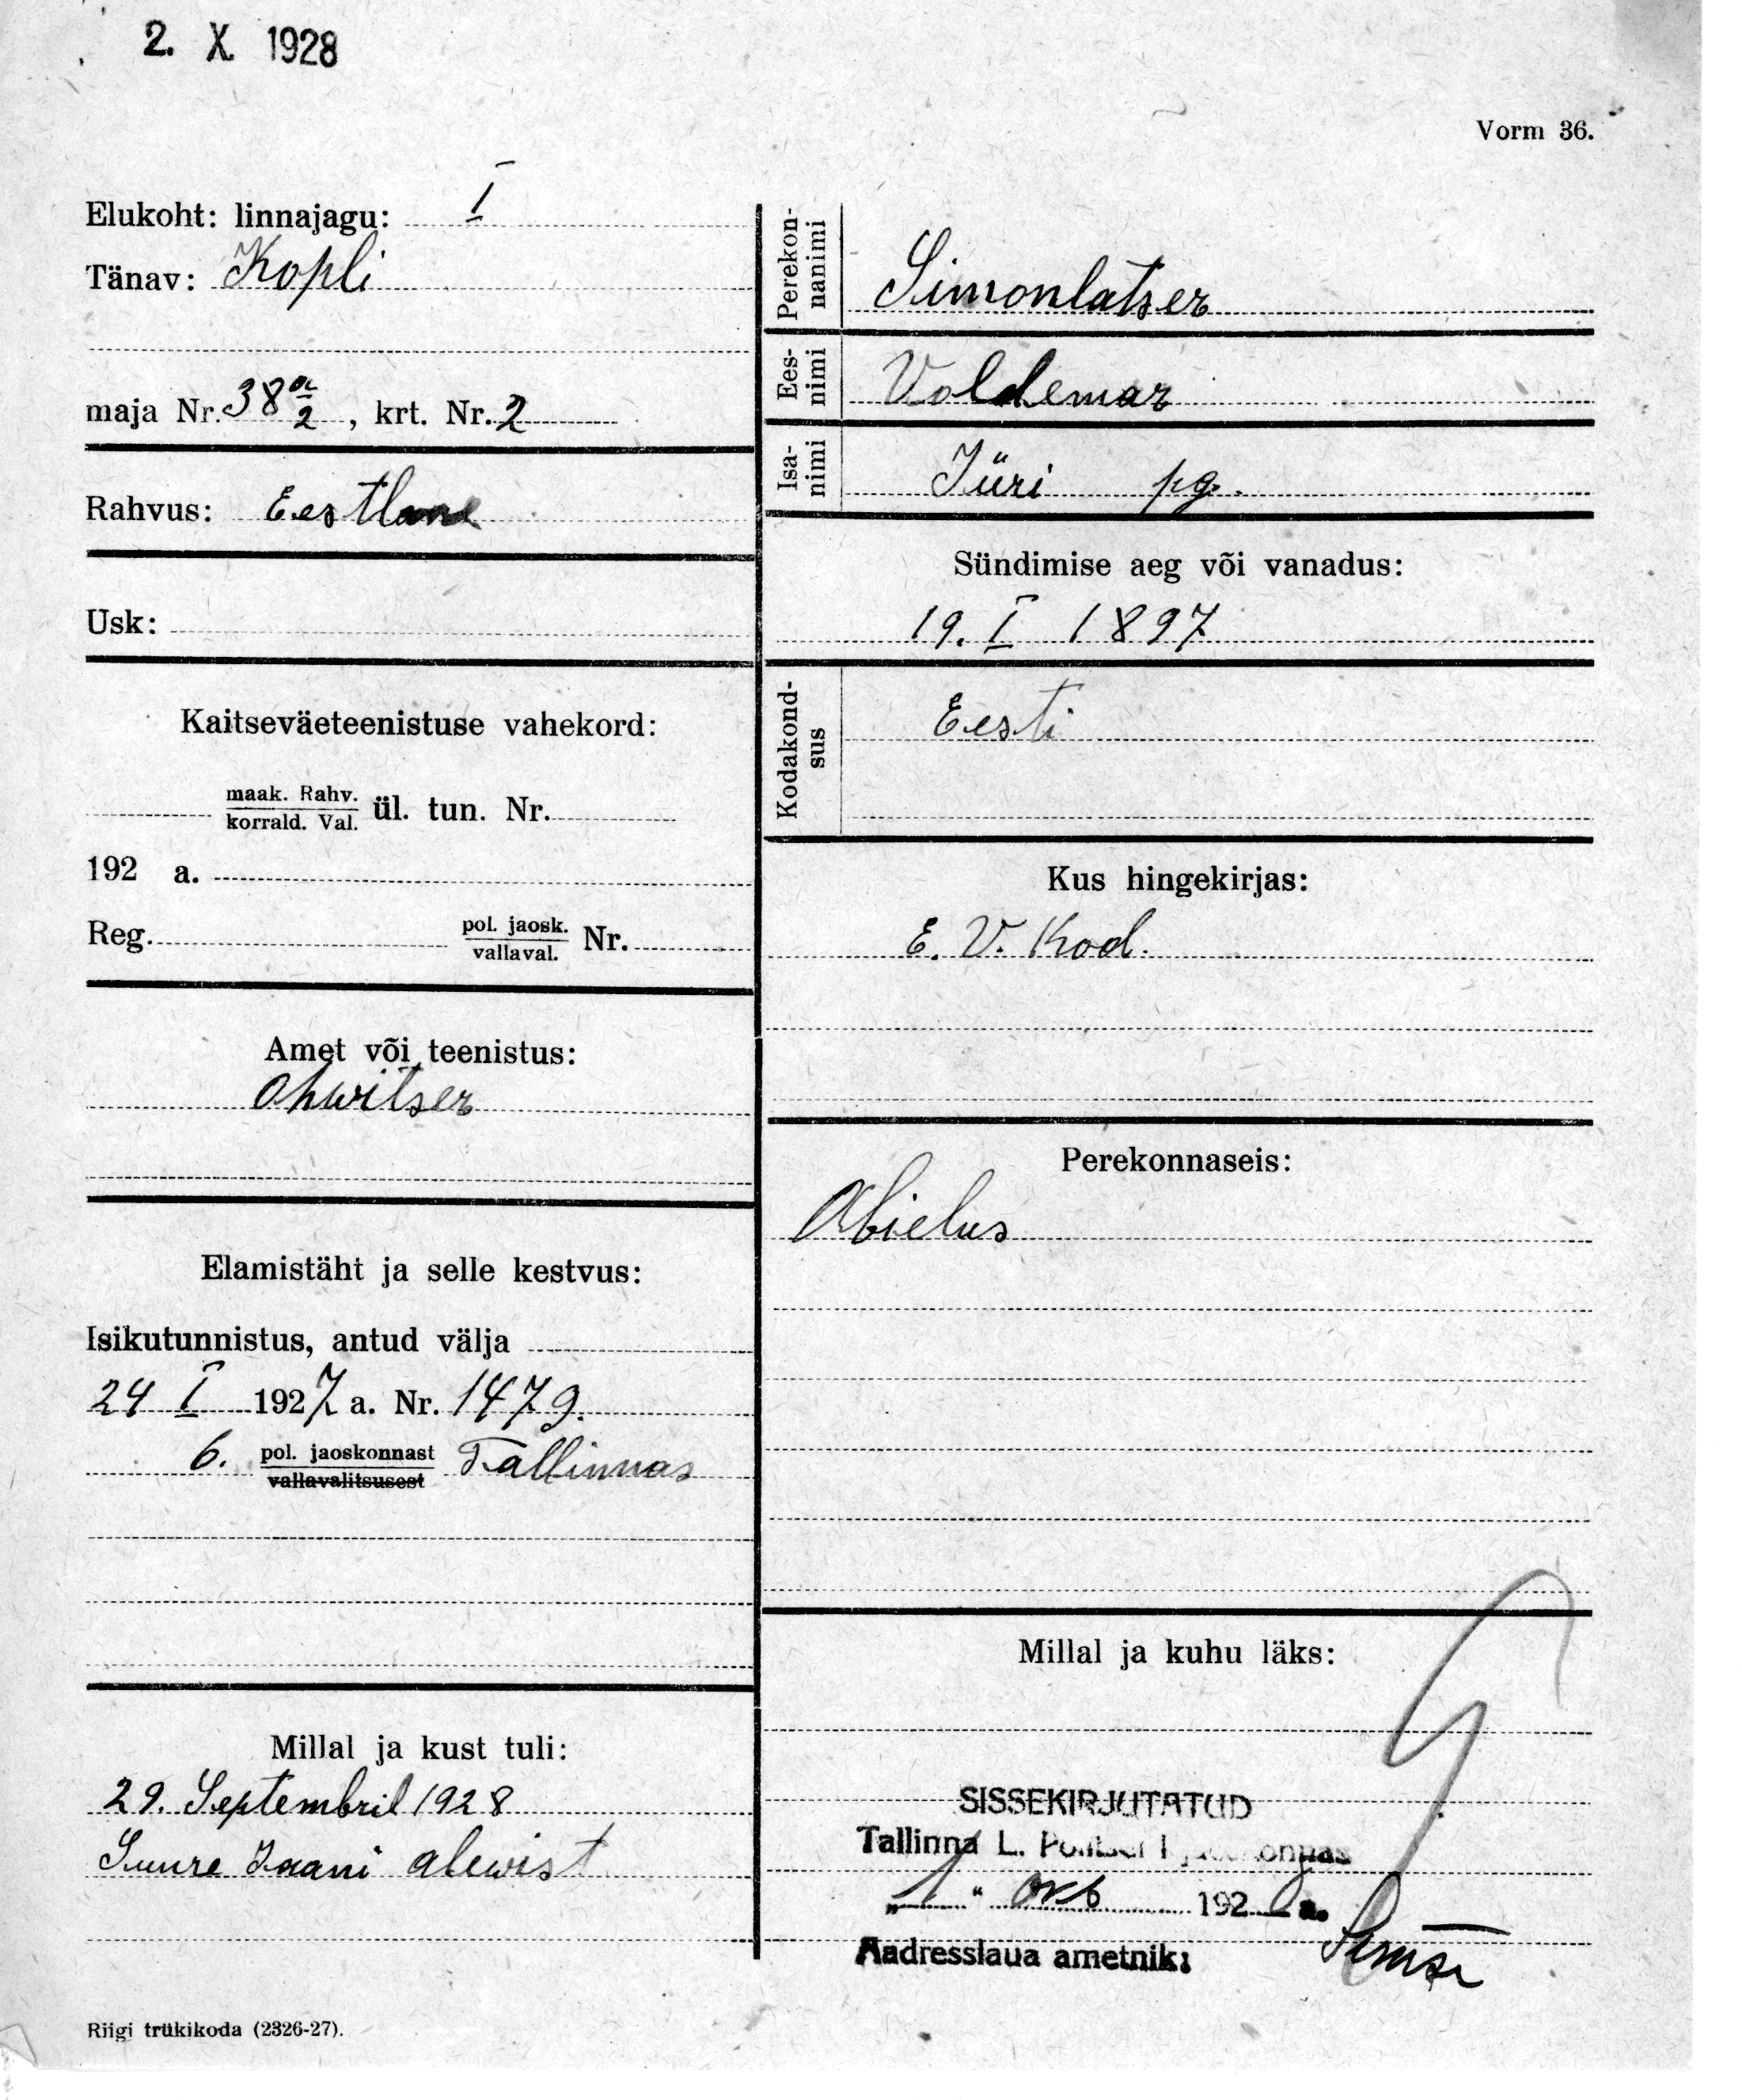 2. X. 1928
Vorm 36.
Elukoht: linnajagu: I
Tänav: Kopli
maja Nr. 38 a/2, krt. Nr. 2
Rahvus: Eestlane
Usk:
Kaitseväeteenistuse vahekord:
maak. Rahv.
korrald. Val. ül. tun. Nr.
192 a.
Reg. pol. jaosk.
vallaval. Nr.
Amet või teenistus:
Ohwitser
Elamistäht ja selle kestvus:
Isikutunnistus, antud välja
24 I 1927 a. Nr. 1479.
6. pol. jaoskonnast Tallinnas
vallavalitsusest
Millal ja kust tuli:
29. Septembril 1928
Suure Jaani alewist
Riigi trükikoda (2326-27).
Perekon-
nanimi Simonlatser
Ees-
nimi Voldemar
Isa-
nimi Jüri pg.
Sündimise aeg või vanadus:
19. I 1897
Kodakond-
sus Eesti
Kus hingekirjas:
E. V. Kod.
Perekonnaseis:
Abielus
Millal ja kuhu läks:
SISSEKIRJUTATUD
Tallinna L. Politsei I jaoskonnas
"1" okt 1928 a.
Aadresslaua ametnik: